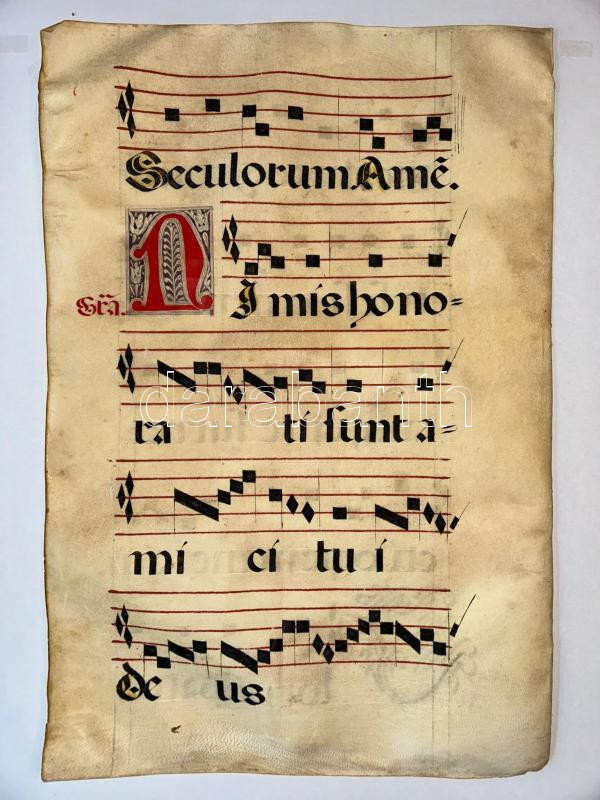 Seculorum Amẽ.
Grã.
NJmis hono=
ra ti sunt a=
mi ci tui
De us
darabanth